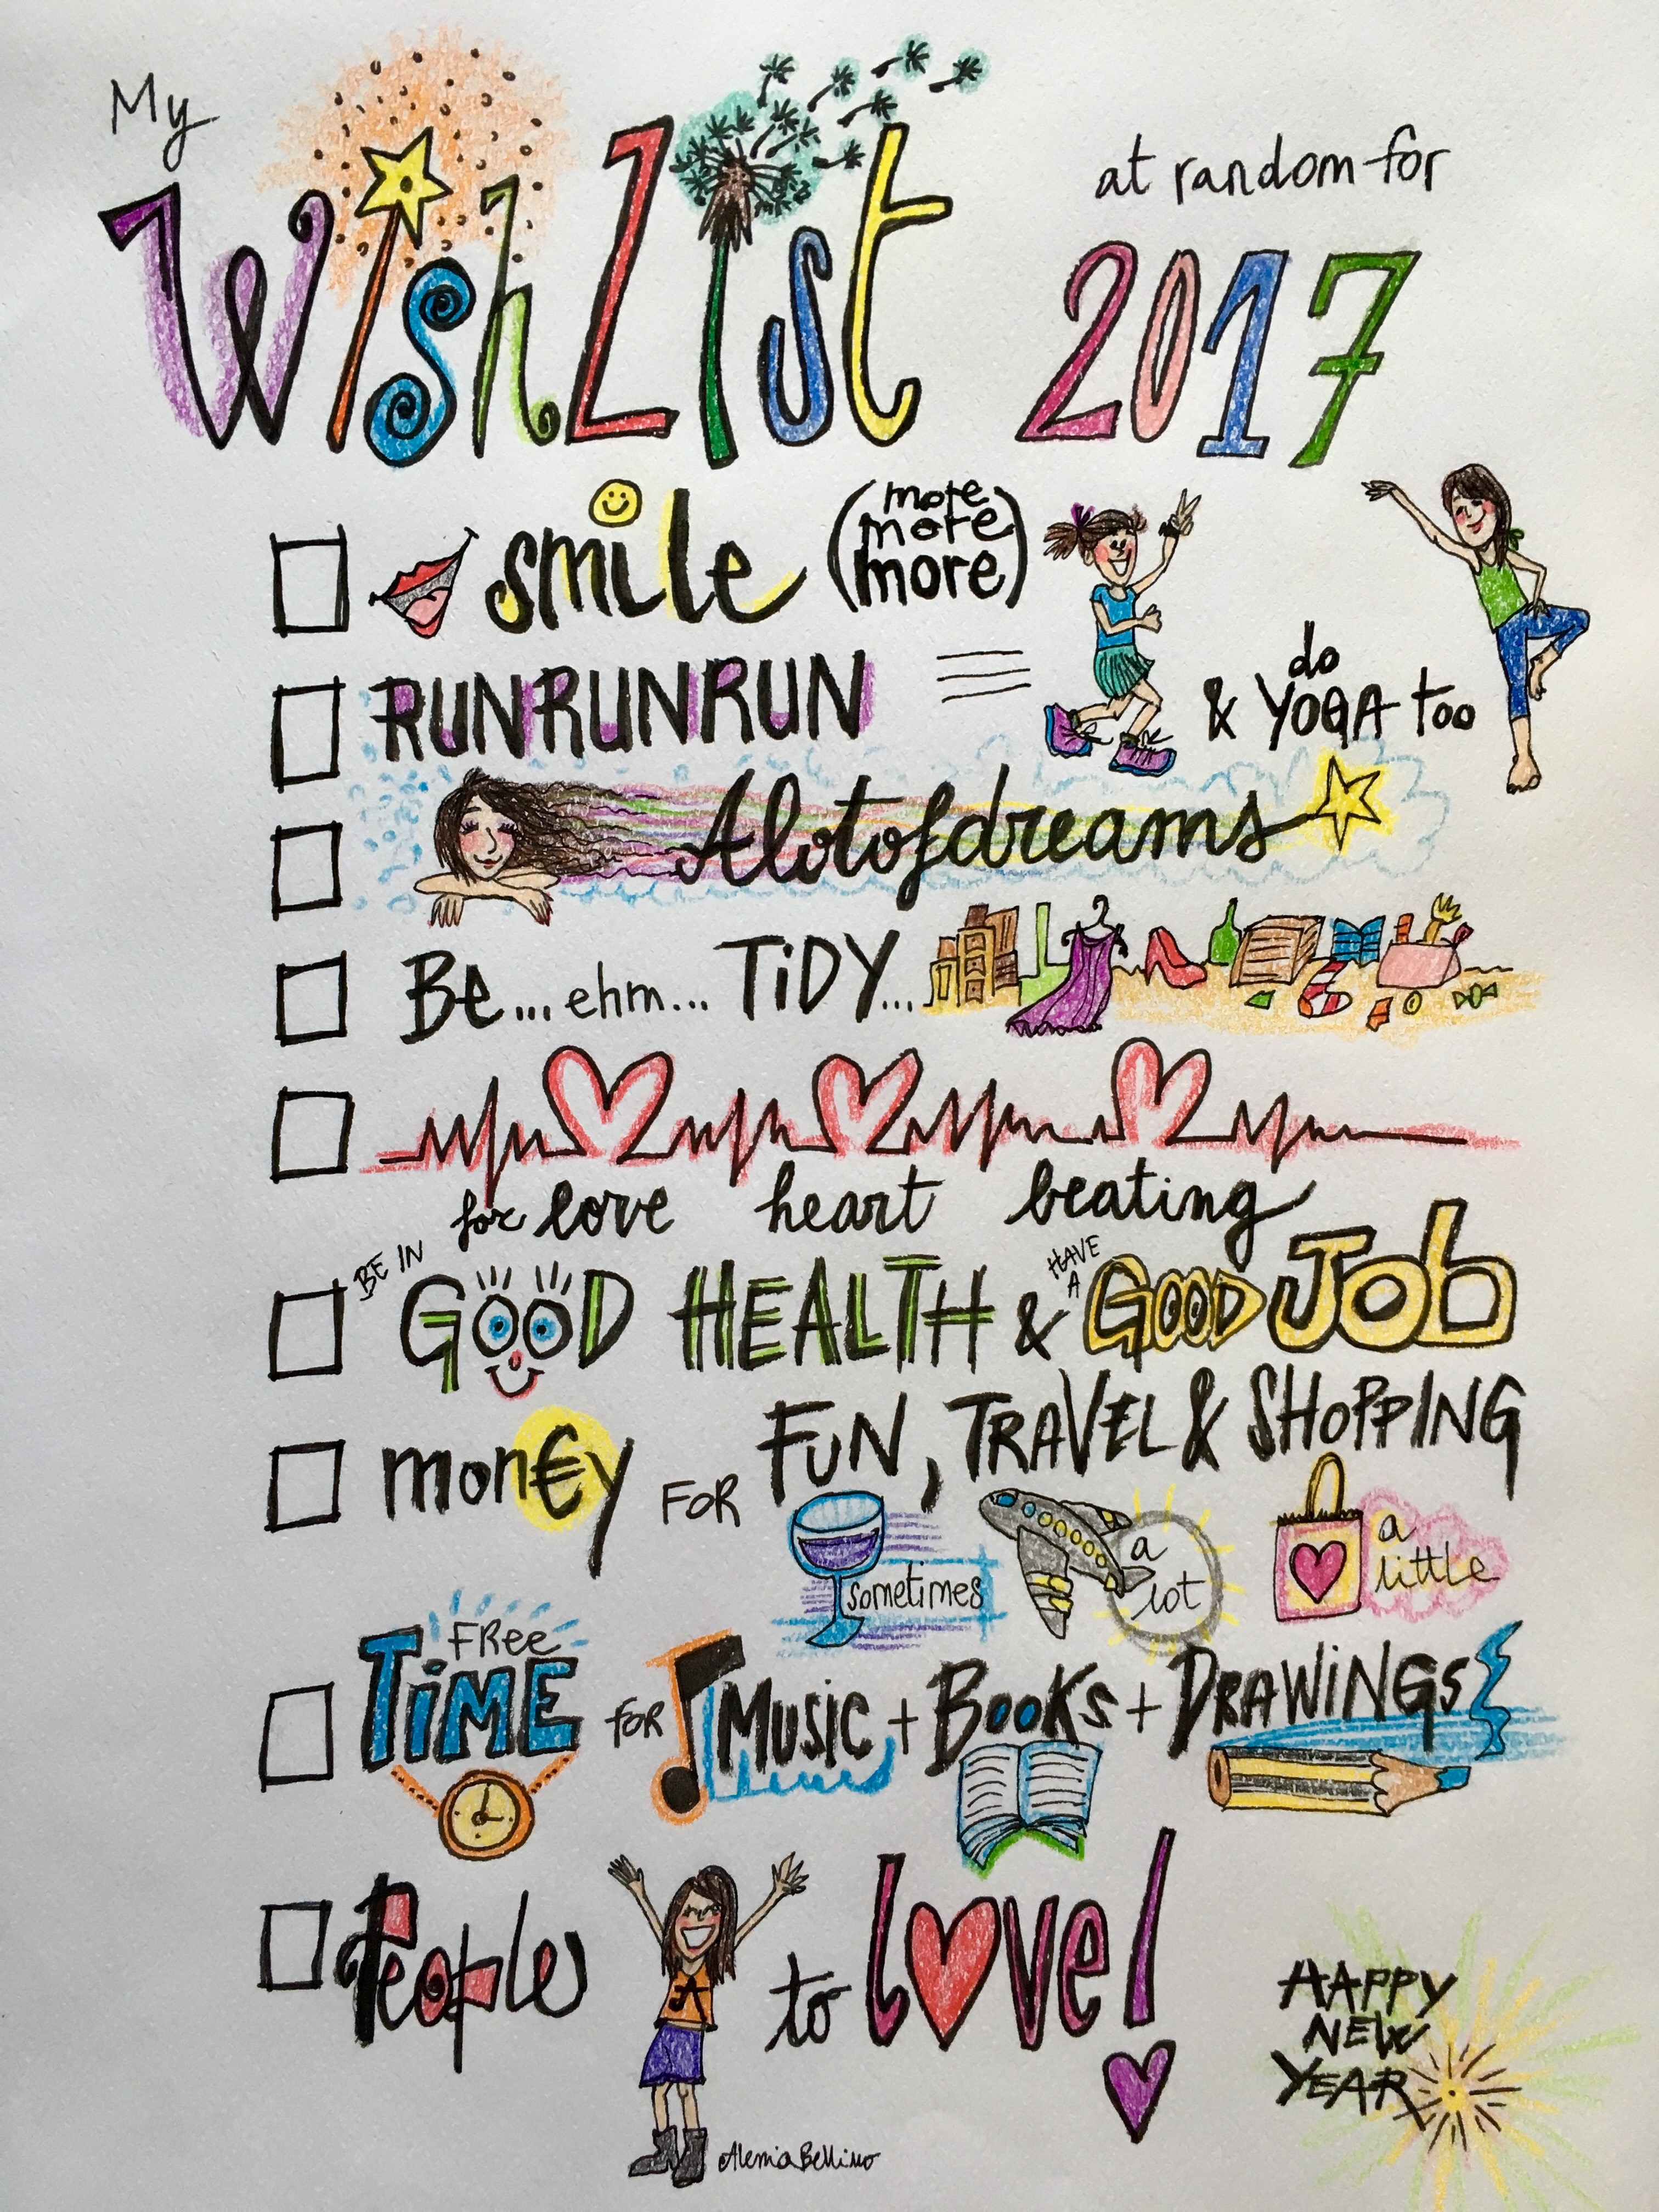 My
WishList at random for
2017
smile (more more more)
RUNRUNRUN & do YOGA too
Alotofdreams
Be...ehm...TiDY...
for love heart beating
BE IN GOOD HEALTH & HAVE A GOOD JOB
mon€y FOR FUN, TRAVEL & SHOPPING
sometimes a lot a little
FRee
TiME FOR MUSIC + BOOKS + DRAWINGS
People to love!
A
HAPPY
NEW
YEAR